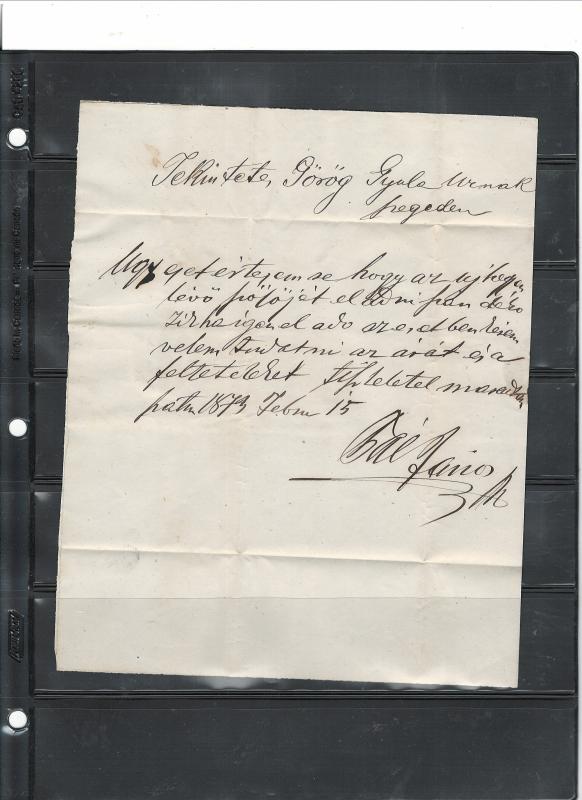 Tekintetes Görög Gyula Urnak
szegeden
Ugy értesem se hogy az uj hegyen
lévő szőlőjét el adni szándéko
zik ha igen el adó az es et ben kérem
velem tudatni az árát és a
feltételeket tisztelettel maradtam
1873 Febru 15
Pál János